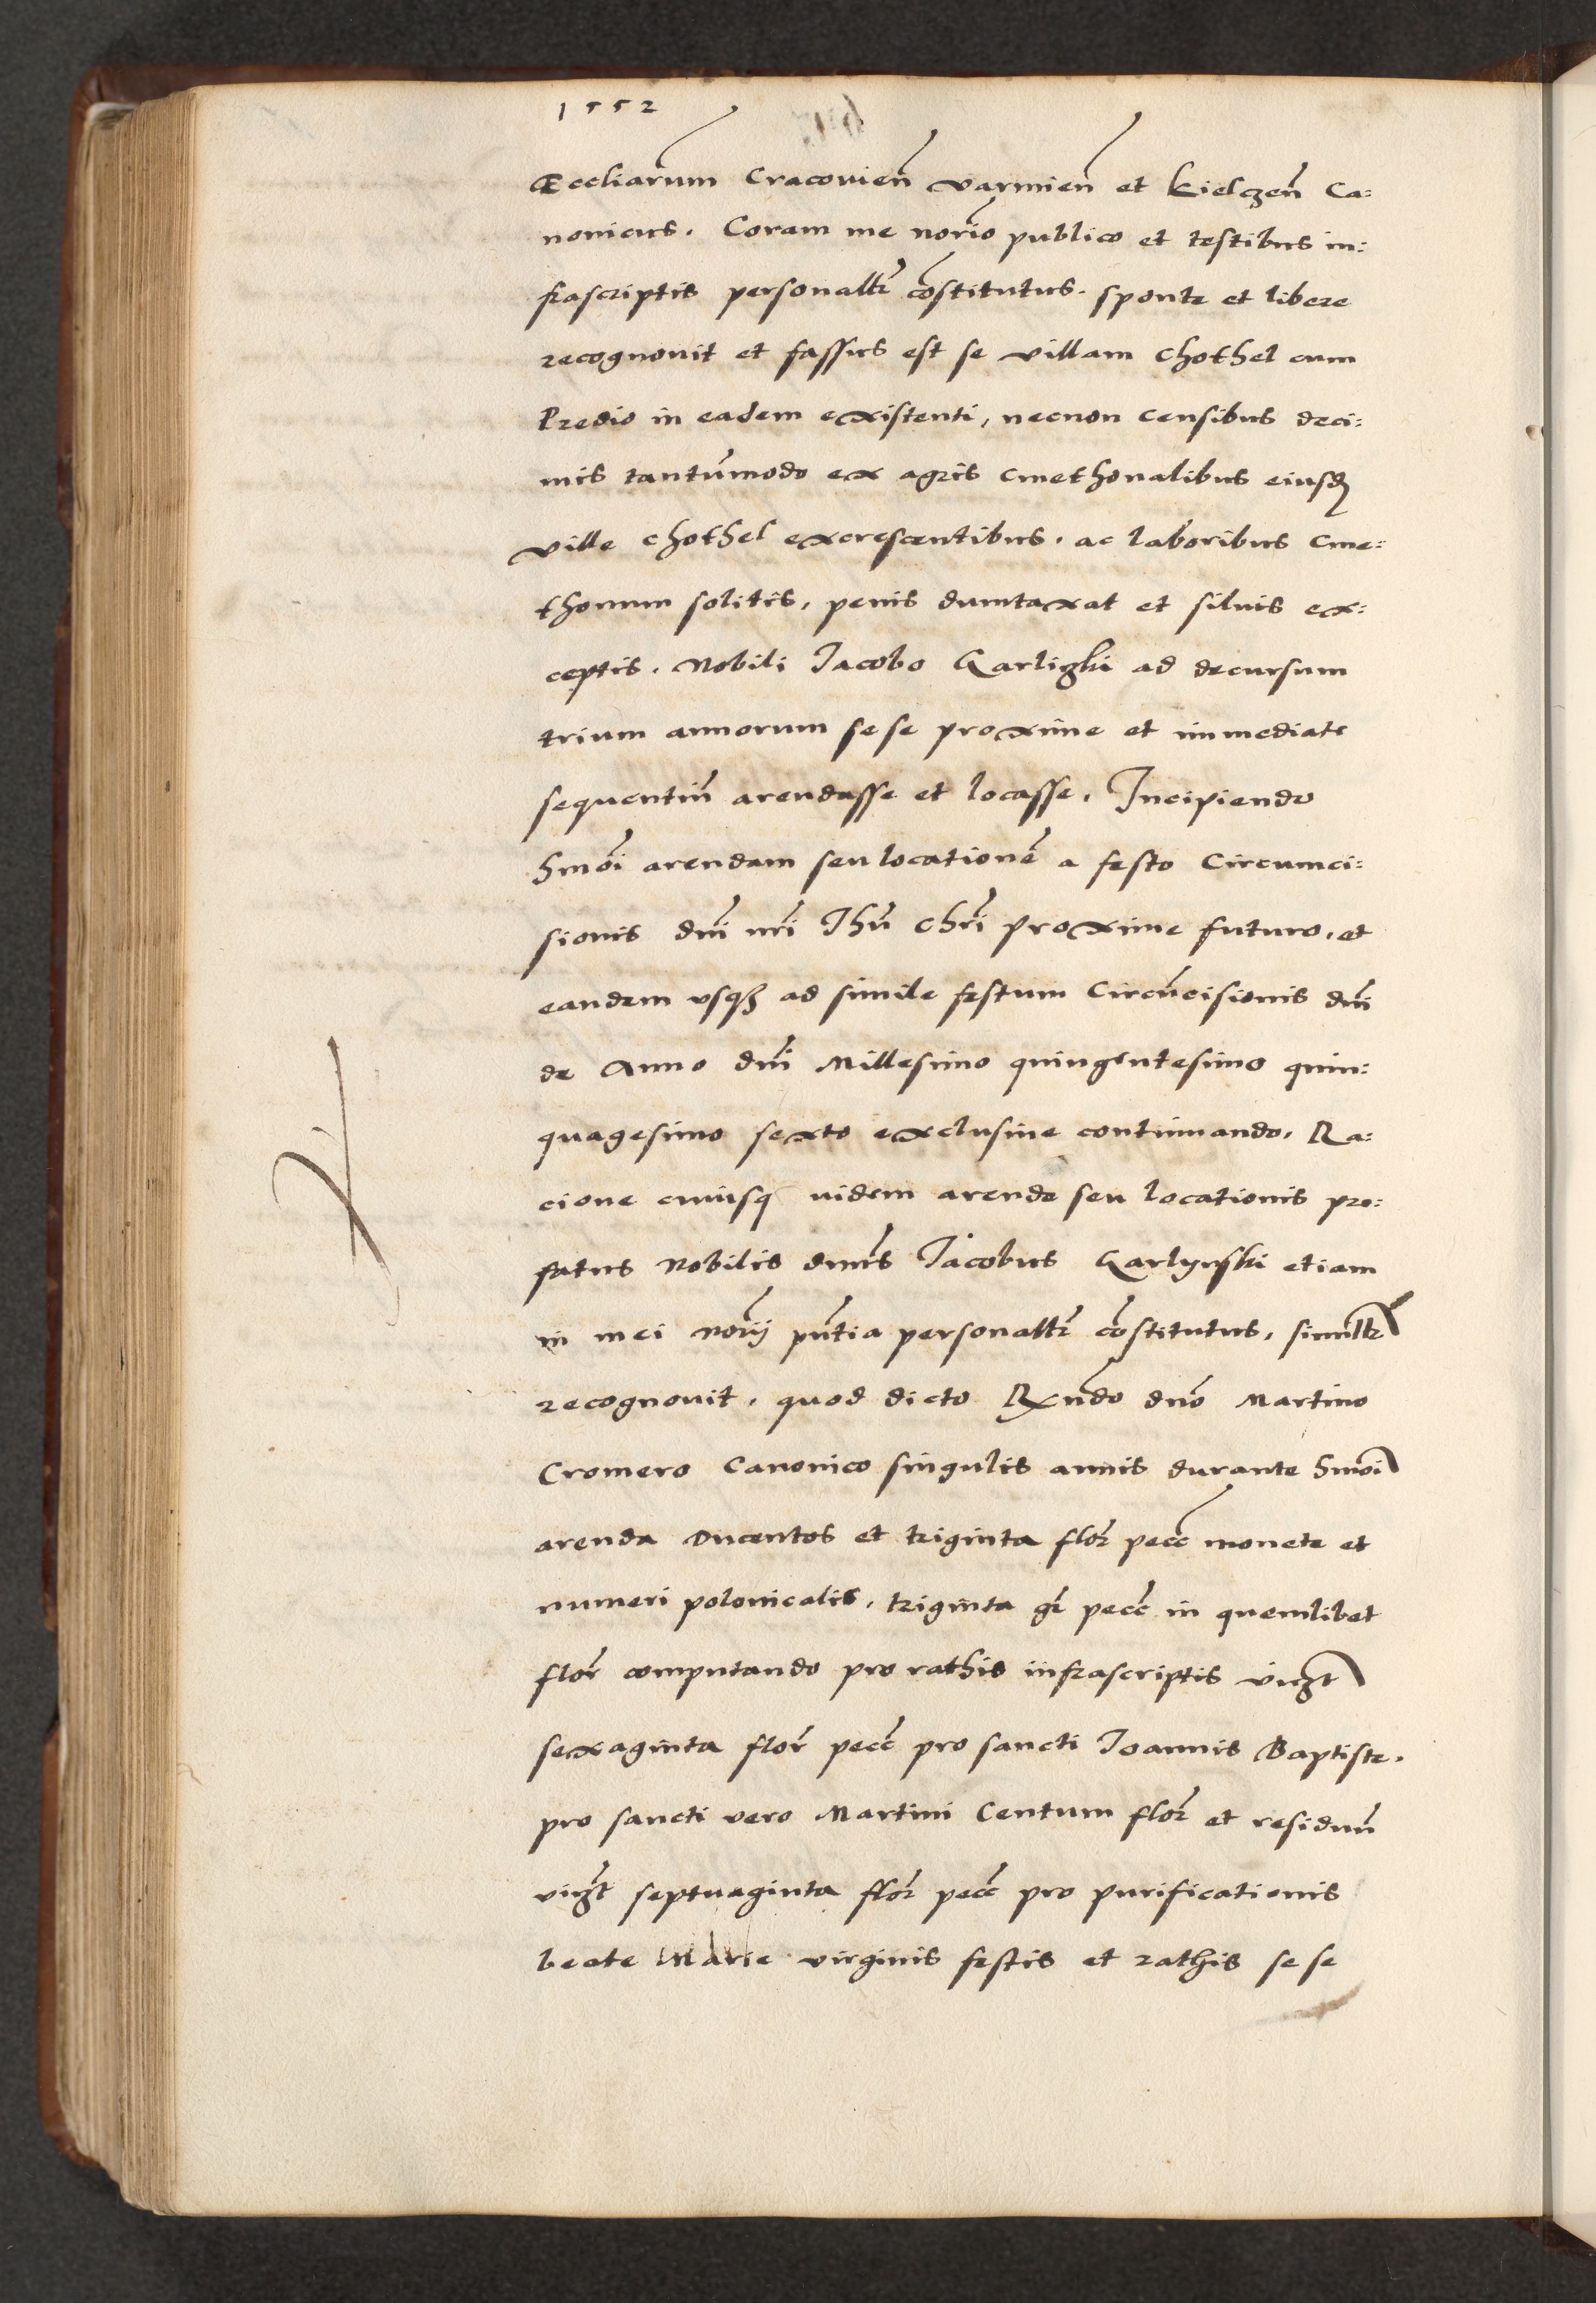 1552
Eccliarum Cracouien̄ varmien̄ et kielczen̄ Ca:
nonicus. Coram me norio publico et testibus in:
frascriptis personalr̄ cōstitutus. sponte et libere
recognouit et fassus est se villam chothel cum
Predio in eadem existenti, necnon censibus deci:
mis tantūmodo ex agris cmethonalibus eiusd
ville chothel excrescentibus. ac laboribus Cme:
thonum solitis, penis dumtaxat et siluis ex:
ceptis. Nobili Jacobo Garliczki ad decursum
trium annorum sese proxime et immediate
sequentiū arendasse et locasse. Incipiendo
hmōi arendam seu locationē a festo Circumci:
sionis dn̄i nr̄i Jhū chr̄i proxime futuro. et
eandem vsq3 ad simile festum Circūcisionis dn̄i
de Anno dn̄i Millesimo quingentesimo quin:
quagesimo sexto exclusiue continuando, Ra:
cione cuiusq uidem arende seu locationis pre:
fatus Nobilis dn̄us Jacobus Garlynski etiam
in mei norij pn̄tia personalr̄ cōstitutus, similr̄
recognouit. quod dicto Rxn̄do dn̄o Martino
Cromero Canonico singulis annis durante hmōi
arenda Ducentos et triginta flor̄ pecc̄ monete et
numeri polonicalis. triginta gr̄ pecc̄ in quemlibet
flor̄ computando pro rathis infrascriptis vicz̄t
sexaginta flor̄ pecc̄ pro sancti Joannis Baptiste.
pro sancti vero Martini Centum flor̄ et residuū
vicz̄t septuaginta flor̄ pecc̄ pro purificationis
beate Marie virginis festis et rathis sese